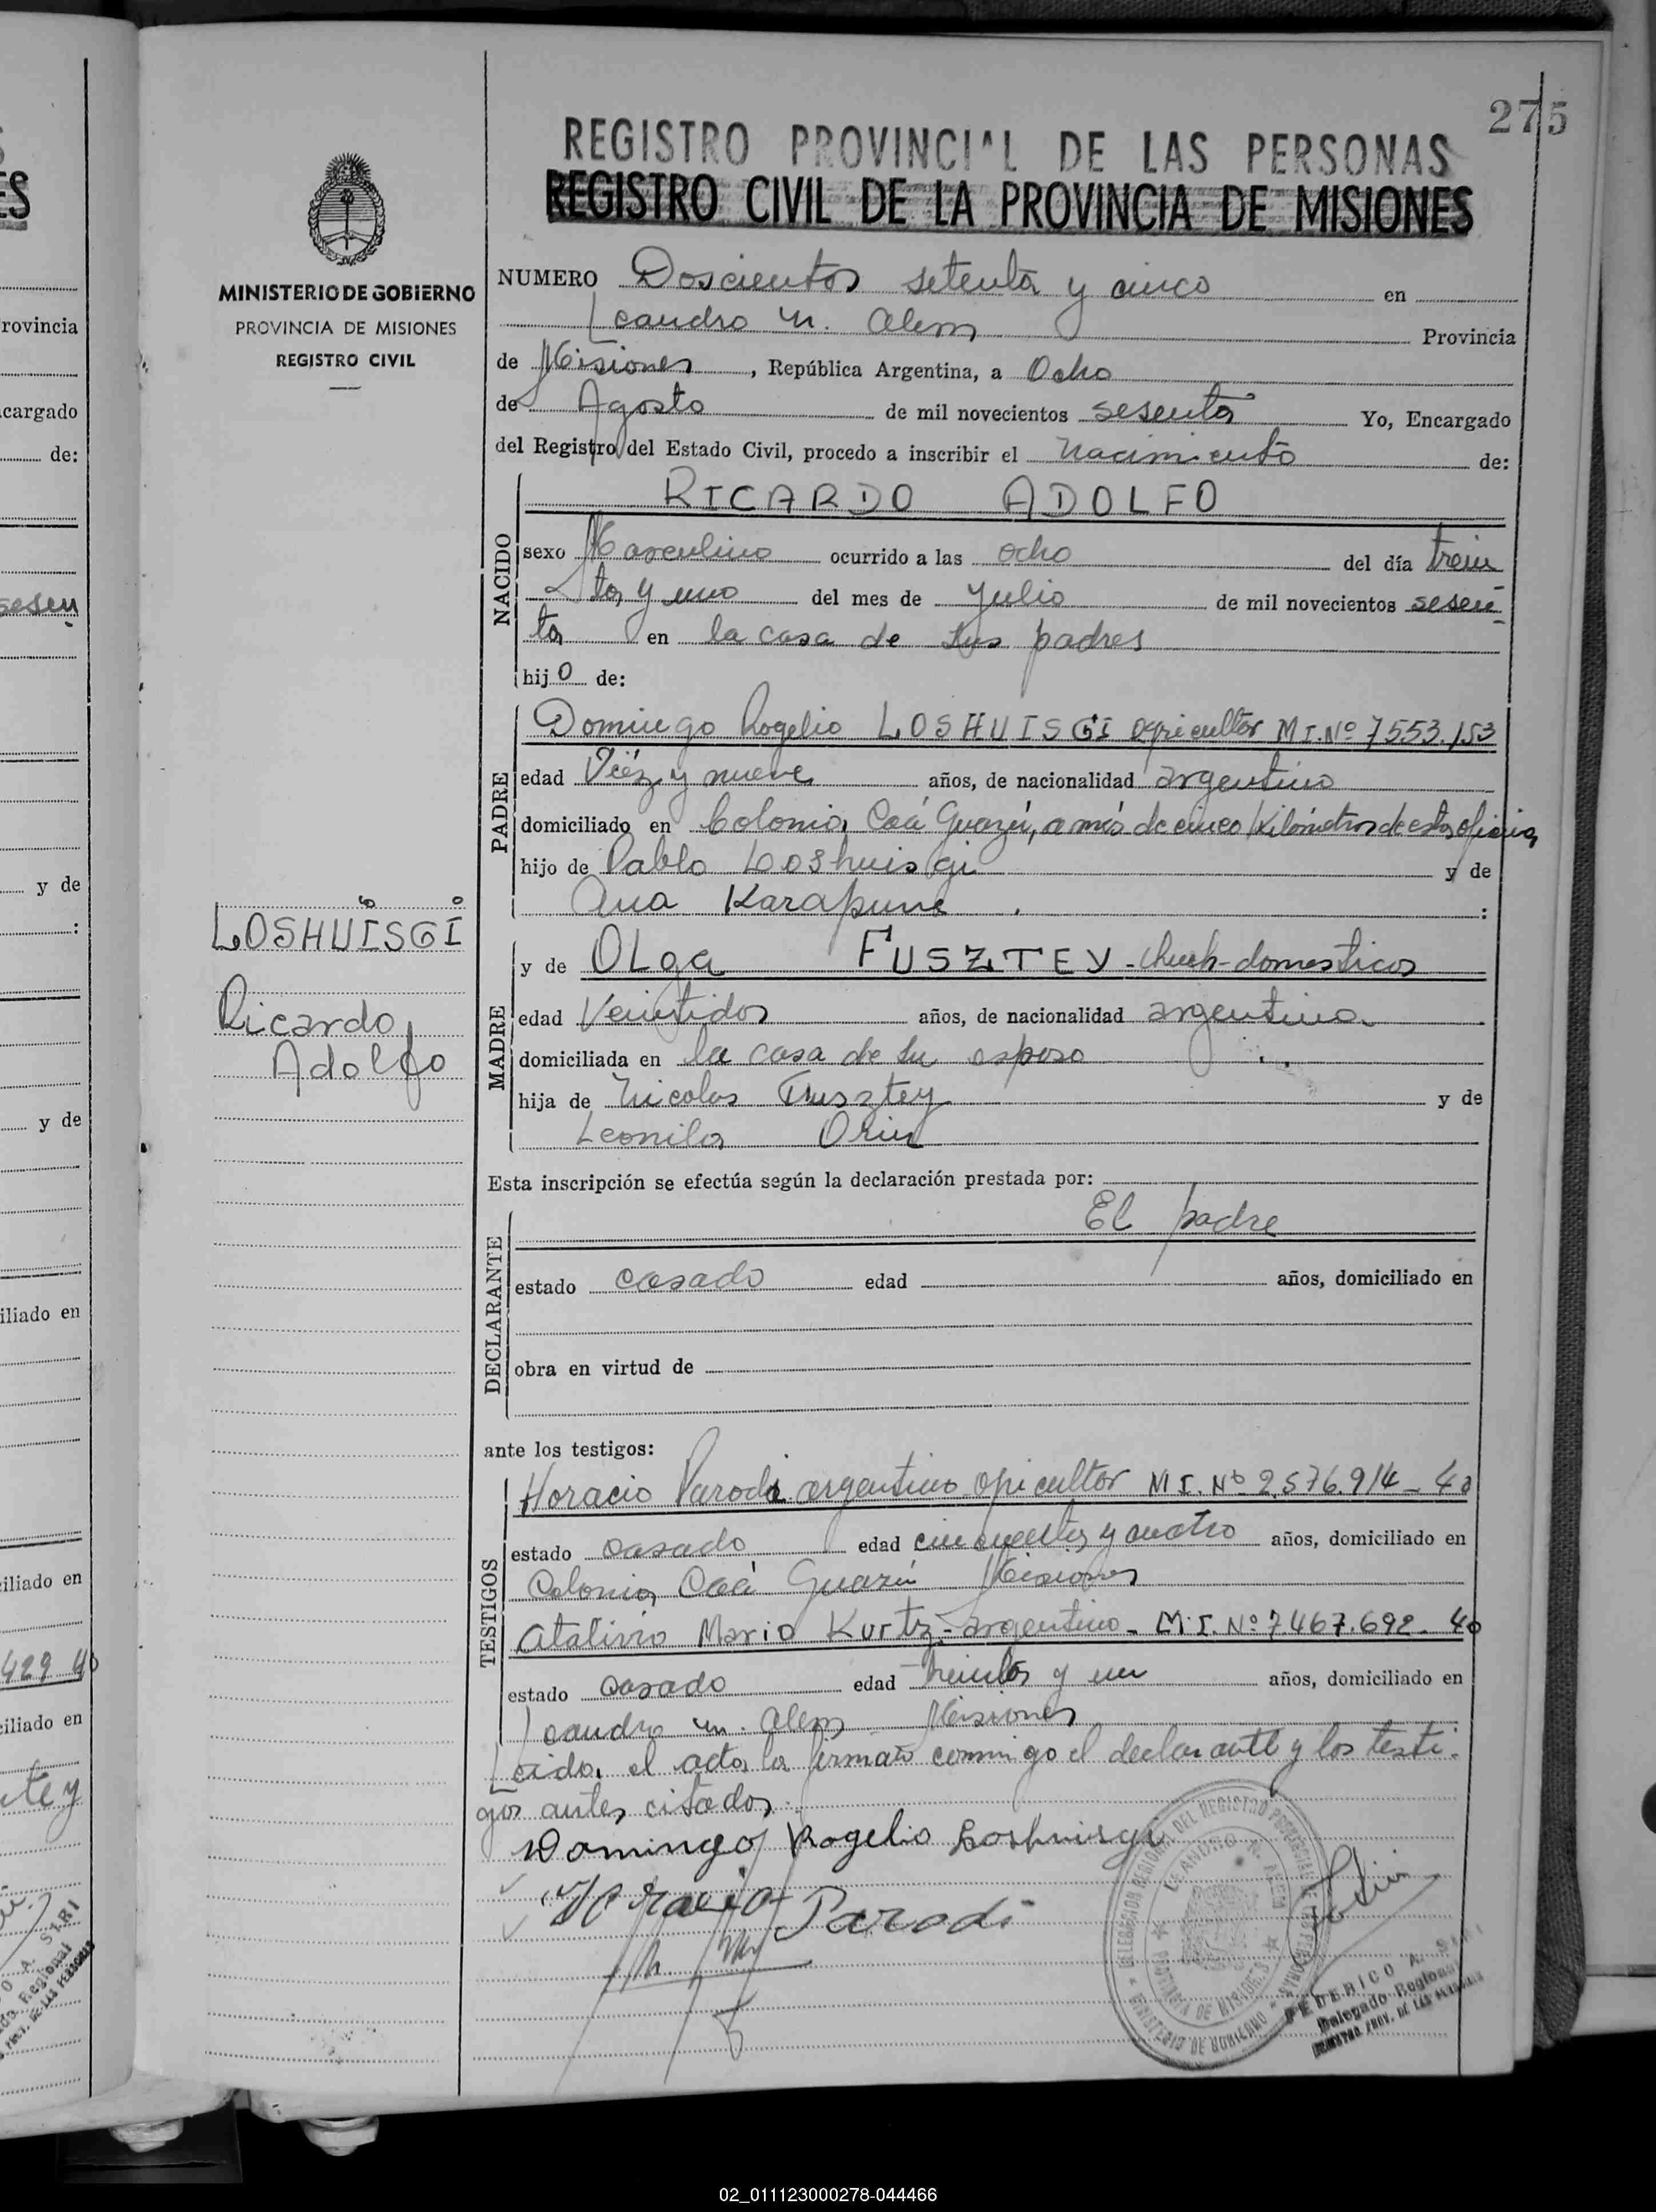 275
REGISTRO PROVINCIAL DE LAS PERSONAS
REGISTRO CIVIL DE LA PROVINCIA DE MISIONES
MINISTERIO DE GOBIERNO
PROVINCIA DE MISIONES
REGISTRO CIVIL
NUMERO Doscientos setenta y cinco en
Leandro N. Alem Provincia
de Misiones, República Argentina, a Ocho
de Agosto de mil novecientos sesenta Yo, Encargado
del Registro del Estado Civil, procedo a inscribir el Nacimiento de:
NACIDO
RICARDO ADOLFO
sexo Masculino ocurrido a las ocho del día trein
ta y uno del mes de Julio de mil novecientos sesen
ta en la casa de sus padres
hijo de:
PADRE
Domingo Rogelio LOSHUISGI agricultor M.I.Nº 7553.153
edad Diéz y nueve años, de nacionalidad argentino
domiciliado en Colonia Caá Guazú, a más de cinco kilómetros de esta oficina
hijo de Pablo Loshuisgi y de
Ana Karapune :
LOSHUISGI
Ricardo
Adolfo
MADRE
y de OLga FUSZTEY - domesticos
edad Veintidos años, de nacionalidad argentina
domiciliada en la casa de su esposo
hija de Nicolas Fusztey y de
Leonila
Esta inscripción se efectúa según la declaración prestada por:
DECLARANTE
El padre
estado casado edad años, domiciliado en
obra en virtud de
ante los testigos:
TESTIGOS
Horacio Parodi argentino agricultor M.I. Nº 2.576.914 - 40
estado casado edad cincuenta y cuatro años, domiciliado en
Colonia Caá Guazú Misiones
Atalivio Mario Kurtz - argentino - M.I. Nº 7467.692 - 40
estado casado edad treinta y un años, domiciliado en
Leandro N. Alem Misiones
Leida el acta la firman conmigo el declarante y los testi-
gos antes citados.
Domingo Rogelio Loshuisgi
Horacio Parodi
DELEGACION REGIONAL DEL REGISTRO PROVINCIAL DE LAS PERSONAS
LEANDRO N. ALEM
PROVINCIA DE MISIONES
MINISTERIO DE GOBIERNO
FEDERICO A. SIRI
Delegado Regional
REGISTRO PROV. DE LAS PERSONAS
02_011123000278-044466